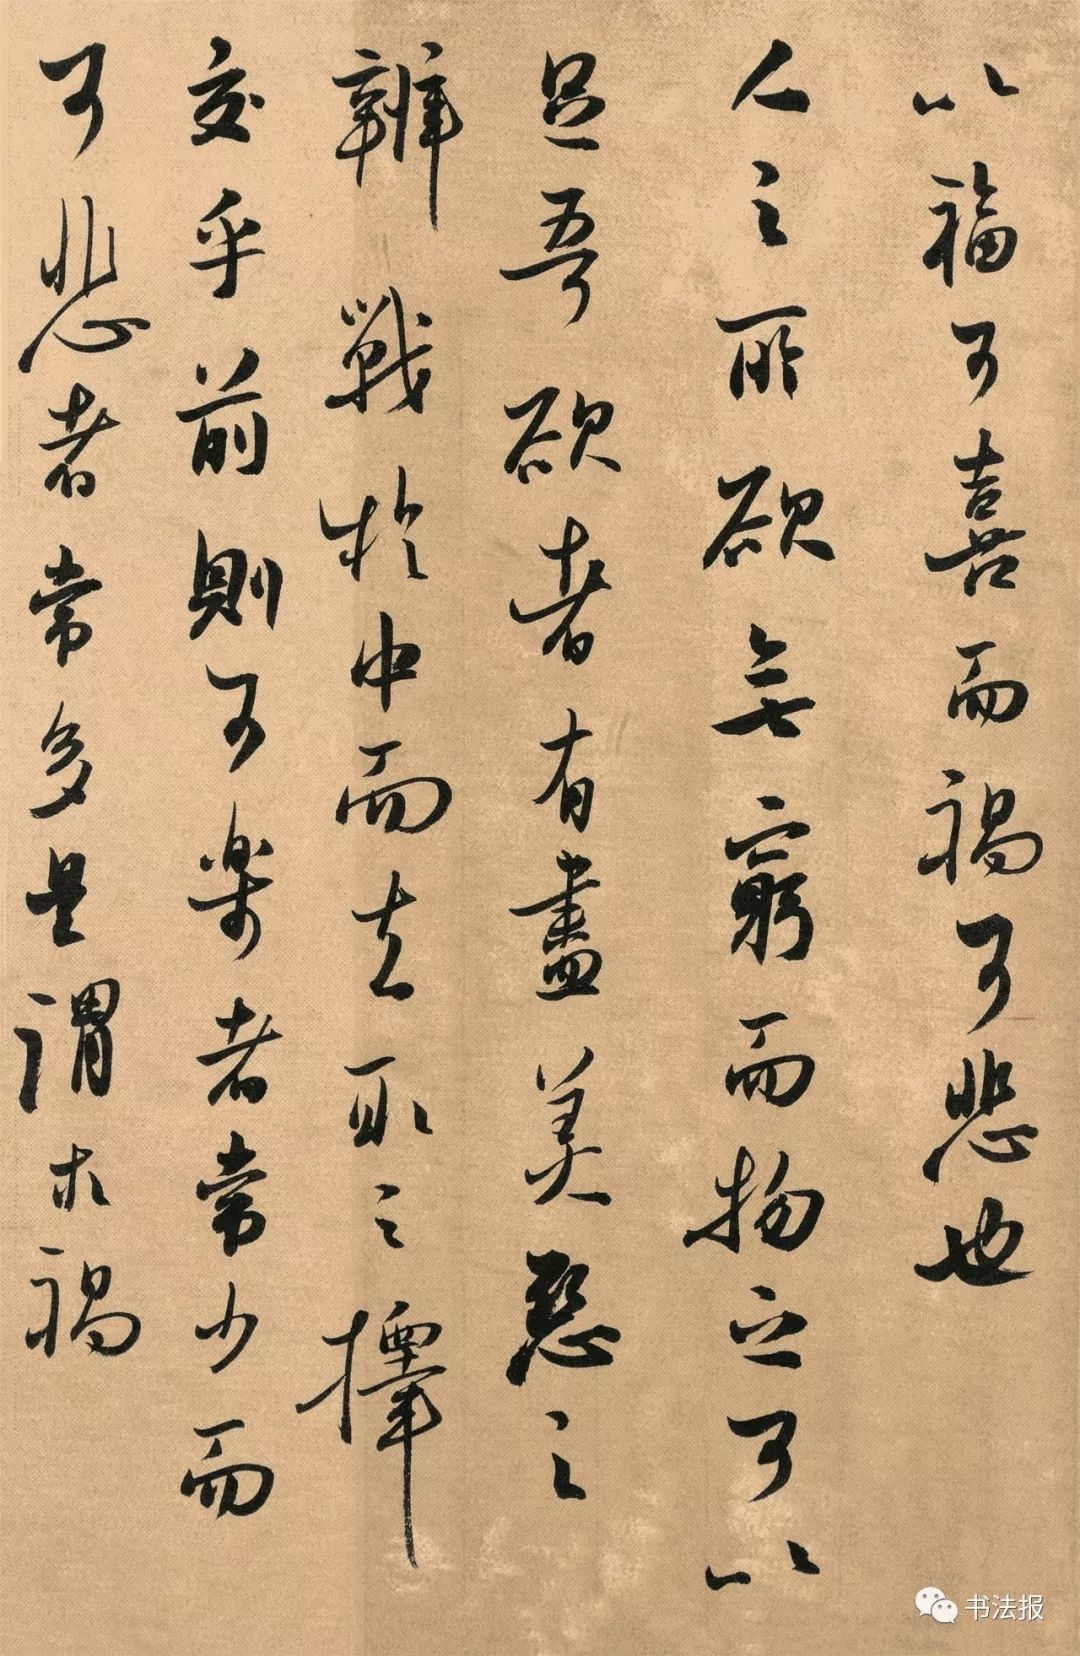 以福可喜而禍可悲也
人之所欲無窮而物之可以
足吾欲者有盡美惡之
辨戰於中而去取之擇
交乎前則可樂者常少而
可悲者常多是謂求禍
书法报